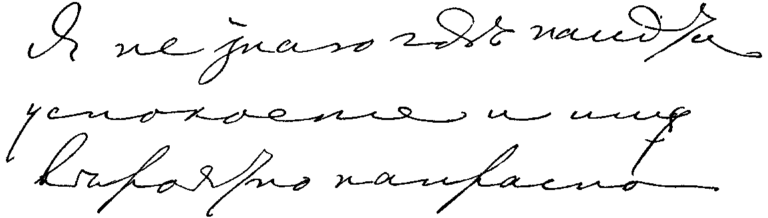 Я не знаю гдѣ найдти
успокоенie и ищу
вѣроятно напрасно